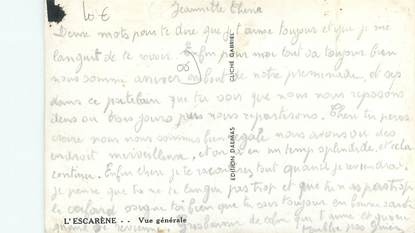 10 €
Jeannette Chérie
Deux mots pour te dire que je t'aime toujours et que je me
languit de te revoir. Enfin pour moi tout va toujours bien
nous somme arriver au bout de notre promenade, et ses
dans ce patelin que tu vois que nous nous reposons
deux ou trois jours puis nous repartirons. Cheri tu peux
croire nous nous sommes bien régalé nous avons vu des
endroit merveilleux, et on a eu un temp splendide, et cela
continu. Enfin cheri je te raconterez tout quand je reviendrai,
je pense que tu ne te languis pas trop et que tu n'as pas trop
le cafard soigne toi bien que tu sois toujours en bonne santé
quand je reviens. Gros de celui qui t'aime et qui ne
t'oublie pas
CLICHÉ GABRIEL
EDITION DAEMAS
L'ESCARÈNE - - Vue générale